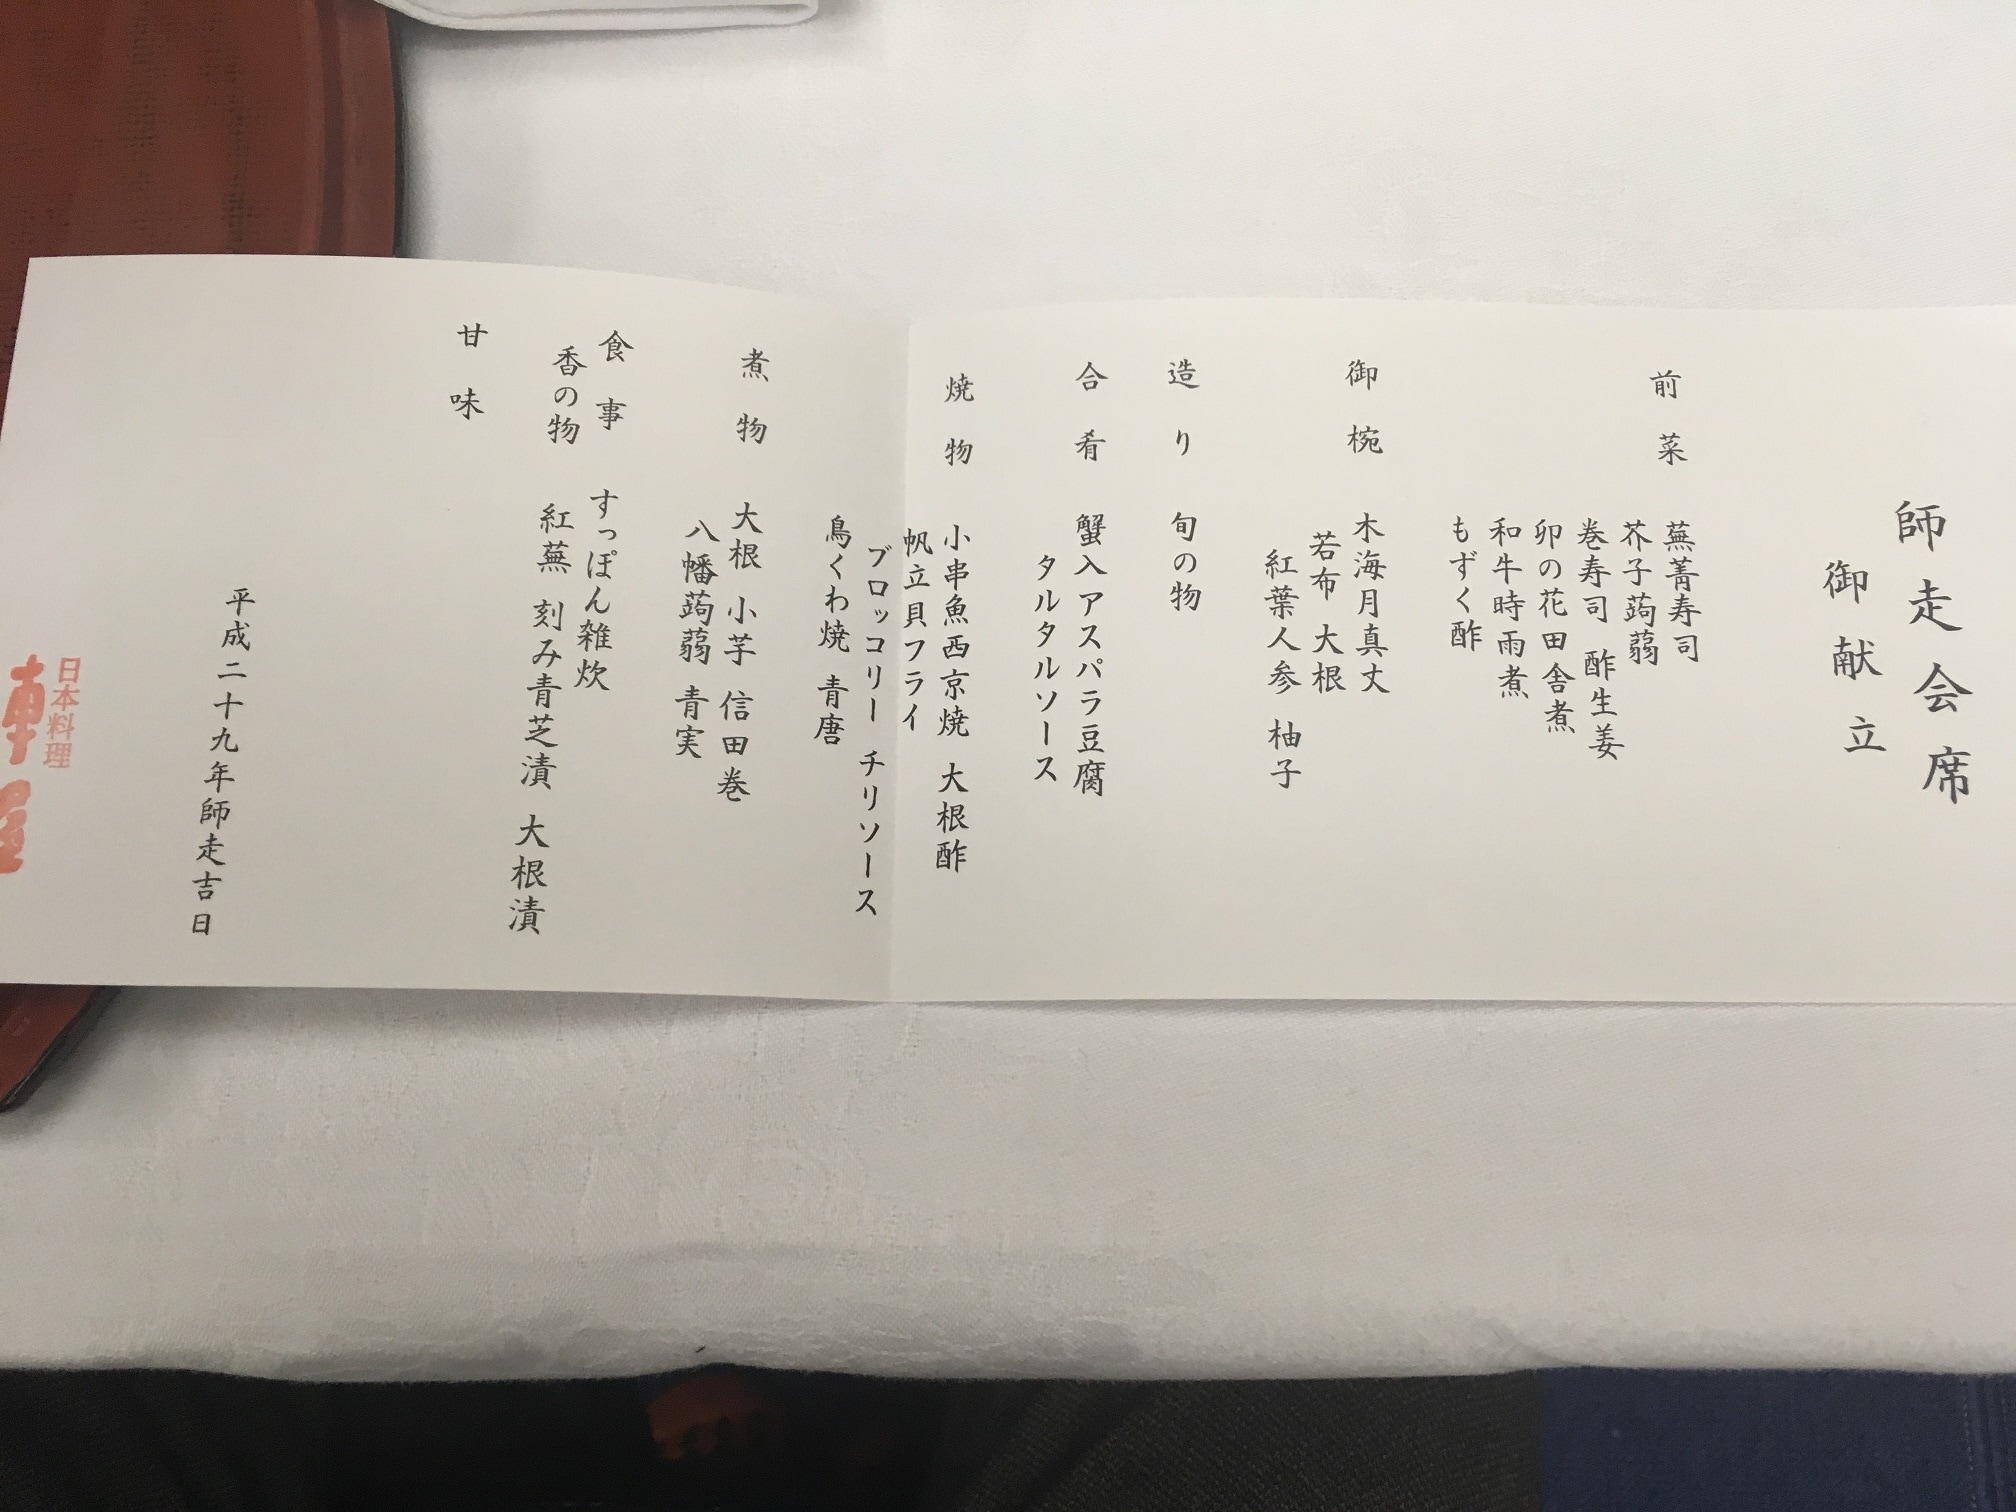 師走会席
御献立
前菜 蕪菁寿司
芥子蒟蒻
巻寿司 酢生姜
卯の花田舎煮
和牛時雨煮
もずく酢
御椀 木海月真丈
若布 大根
紅葉人参 柚子
造り 旬の物
合肴 蟹入アスパラ豆腐
タルタルソース
焼物 小串魚西京焼 大根酢
帆立貝フライ
ブロッコリー チリソース
鳥くわ焼 青唐
煮物 大根 小芋 信田巻
八幡蒟蒻 青実
食事 すっぽん雑炊
香の物 紅蕪 刻み青芝漬 大根漬
甘味
平成二十九年師走吉日
日本料理